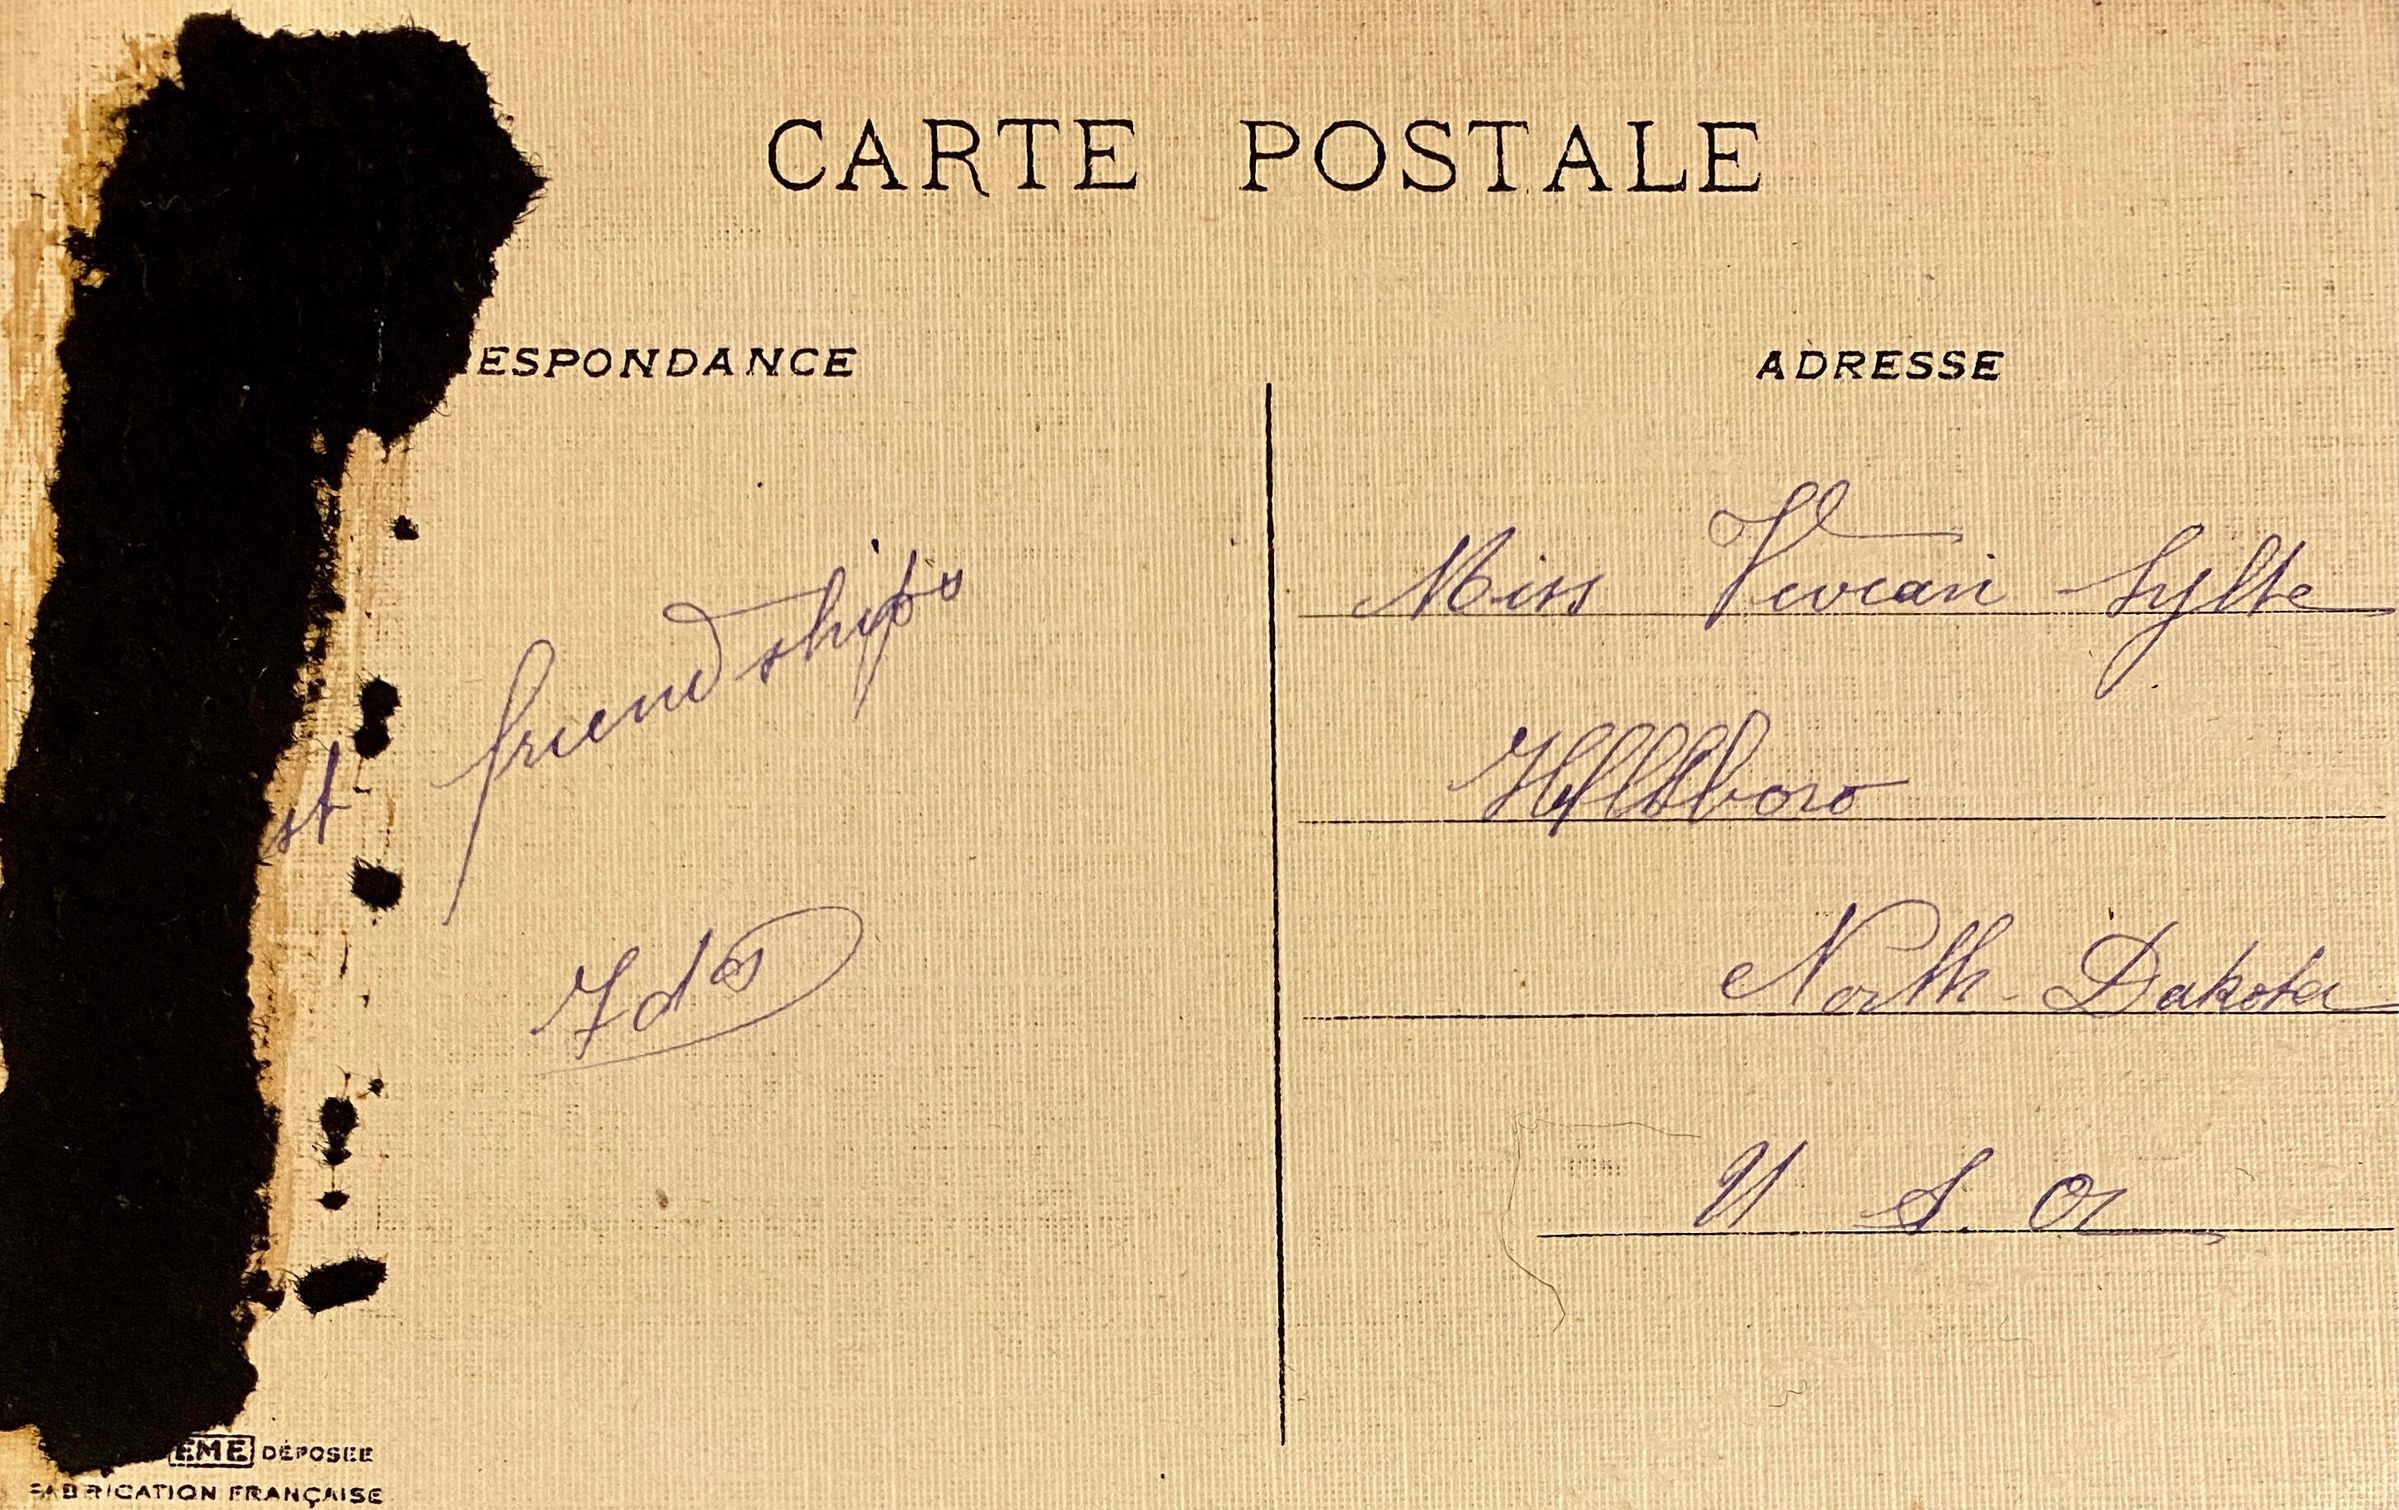 CARTE POSTALE
RESPONDANCE
ADRESSE
st friendships
Miss Vivian Sylte
Hillsboro
North Dakota
U S. A
EME DÉPOSÉE
FABRICATION FRANÇAISE